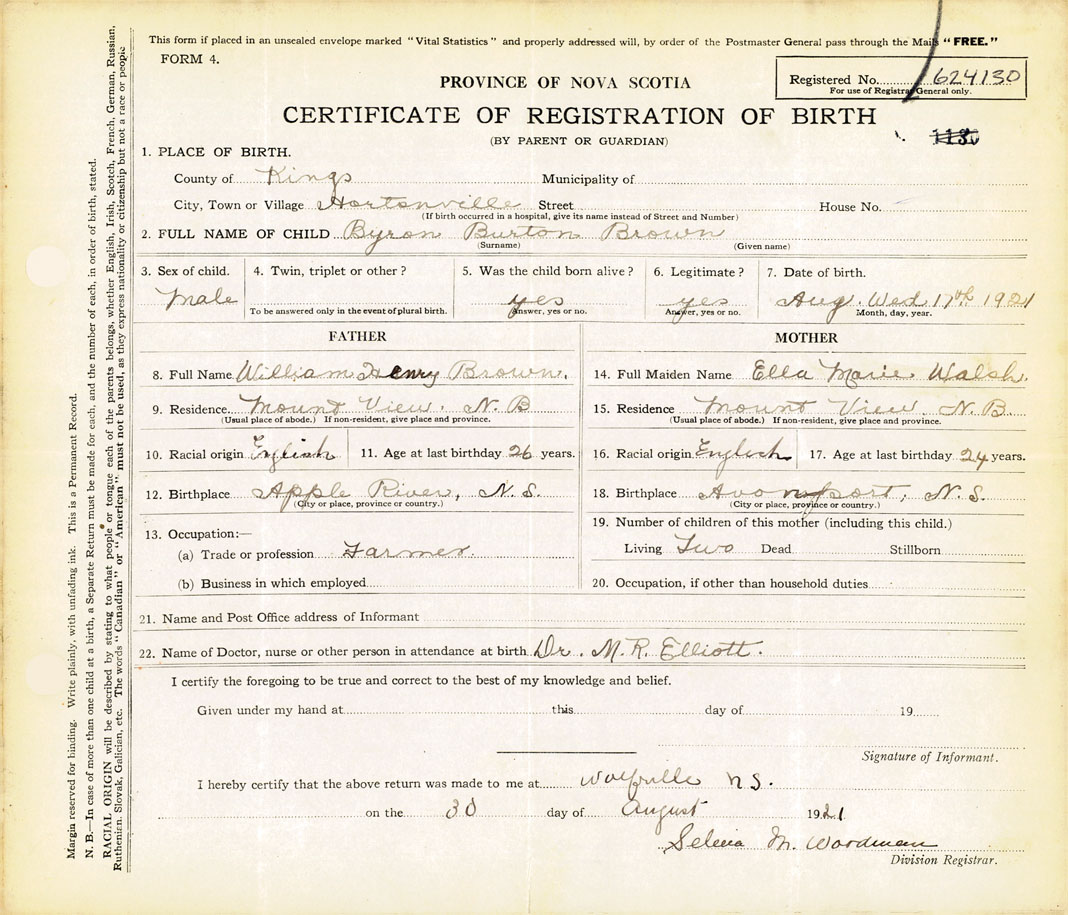 This form if placed in an unsealed envelope marked "Vital Statistics" and properly addressed will, by order of the Postmaster General pass through the Mails "FREE."
FORM 4.
Registered No. 624130
For use of Registrar General only.
PROVINCE OF NOVA SCOTIA
CERTIFICATE OF REGISTRATION OF BIRTH
(BY PARENT OR GUARDIAN)
1. PLACE OF BIRTH.
County of Kings Municipality of
City, Town or Village Hortonville Street House No.
(If birth occurred in a hospital, give its name instead of Street and Number)
2. FULL NAME OF CHILD Byron Burton Brown
(Surname) (Given name)
3. Sex of child. 4. Twin, triplet or other? 5. Was the child born alive? 6. Legitimate? 7. Date of birth.
Male yes yes Aug. Wed 17th 1921
To be answered only in the event of plural birth. Answer, yes or no. Answer, yes or no. Month, day, year.
FATHER
8. Full Name William Henry Brown.
9. Residence Mount View. N. B
(Usual place of abode.) If non-resident, give place and province.
10. Racial origin English 11. Age at last birthday 26 years.
12. Birthplace Apple River, N. S.
(City or place, province or country.)
13. Occupation:—
(a) Trade or profession Farmer.
(b) Business in which employed
MOTHER
14. Full Maiden Name Ella Marie Walsh.
15. Residence Mount View. N. B.
(Usual place of abode.) If non-resident, give place and province.
16. Racial origin English 17. Age at last birthday 24 years.
18. Birthplace Avonport, N. S.
(City or place, province or country.)
19. Number of children of this mother (including this child.)
Living Two Dead Stillborn
20. Occupation, if other than household duties
21. Name and Post Office address of Informant
22. Name of Doctor, nurse or other person in attendance at birth Dr. M. R. Elliott.
I certify the foregoing to be true and correct to the best of my knowledge and belief.
Given under my hand at this day of 19
Signature of Informant.
I hereby certify that the above return was made to me at Wolfville N S.
on the 30 day of August 1921
Selena M. Woodman
Division Registrar.
Margin reserved for binding. Write plainly, with unfading ink. This is a Permanent Record.
N. B.—In case of more than one child at a birth, a Separate Return must be made for each, and the number of each, in order of birth, stated.
RACIAL ORIGIN will be described by stating to what people or tongue each of the parents belongs, whether English, Irish, Scotch, French, German, Russian,
Ruthenian, Slovak, Galician, etc. The words "Canadian" or "American" must not be used, as they express nationality or citizenship but not a race or people